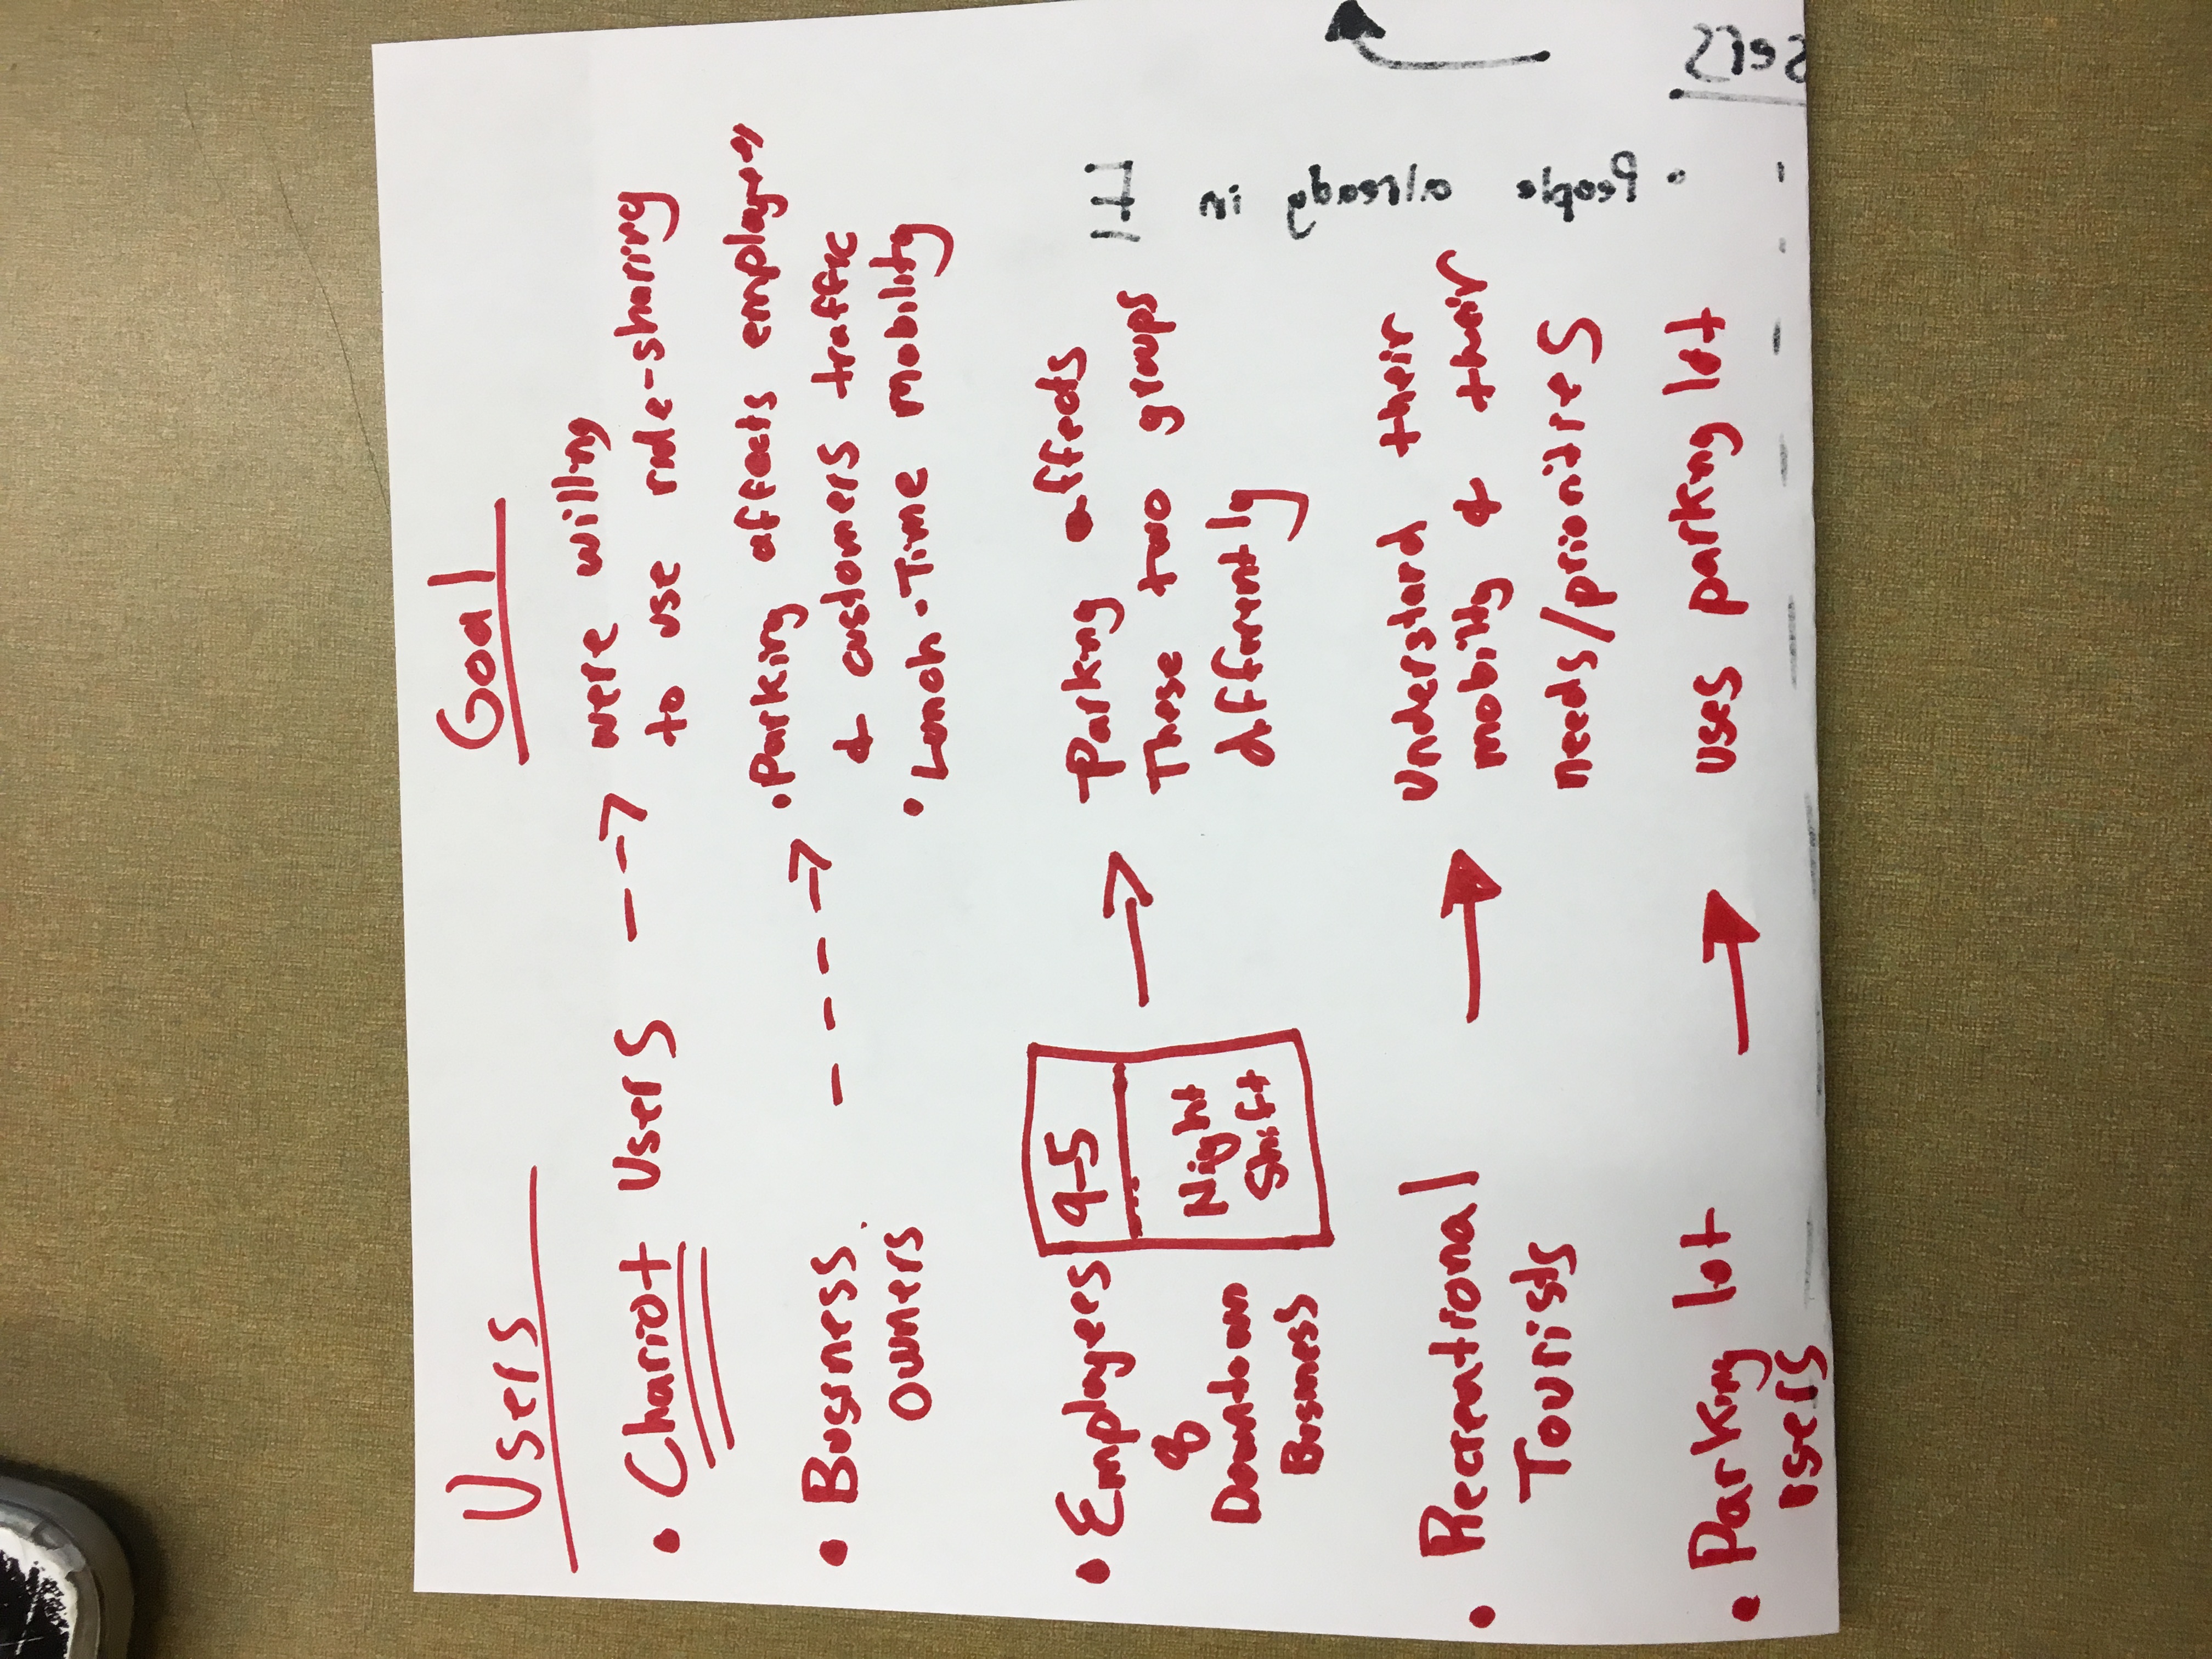 Users
Goal
• Chariot Users
were willing
to use ride-sharing
• Business
owners
• Parking affects employees
& customers traffic
• Lunch-Time mobility
• Employees
&
Downtown
Business
9-5
Night
Shift
Parking affects
These two groups
differently
• Recreational
Tourists
Understand their
mobility & their
needs/priorities
• Parking lot
users
uses parking lot
• People already in